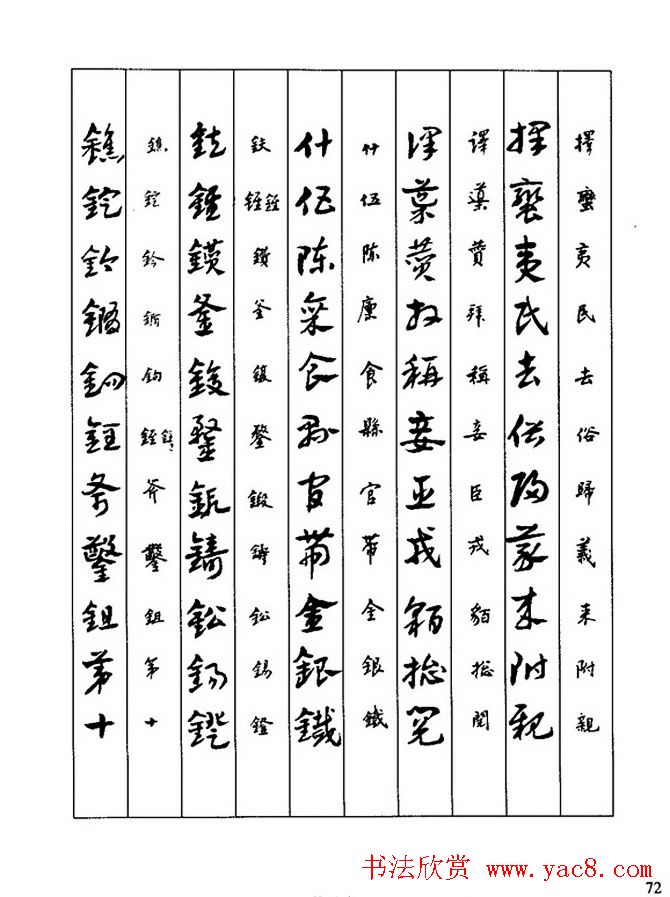 擇蠻夷民去俗歸義来附親
擇蠻夷民去俗歸義来附親
譯賛拜稱妾臣戎貊揔閱
譯賛拜稱妾臣戎貊揔閱
什伍陳廩食縣官帶金銀鐵
什伍陳廩食縣官帶金銀鐵
鈇鑽釜鍑鍪鍛鑄鈆錫鐙
鈇鑽釜鍑鍪鍛鑄鈆錫鐙
鐎錠鈐鉤銍斧鑿鉏第十
鐎錠鈐鉤銍斧鑿鉏第十
书法欣赏 www.yac8.com
72